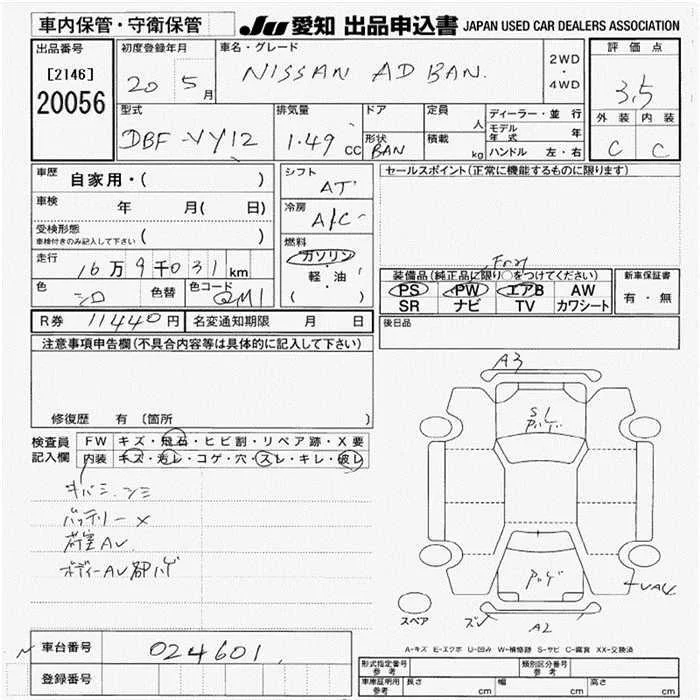 車内保管・守衛保管
JU 愛知 出品申込書 JAPAN USED CAR DEALERS ASSOCIATION
出品番号
[2146]
20056
初度登録年月
20 5月
車名・グレード
NISSAN AD BAN.
2WD
・
4WD
評価点
3.5
外装 内装
C C
型式
DBF-VY12
排気量
1.49 CC
ドア
形状
BAN
定員
人
積載
kg
ディーラー・並行
モデル年式 年
ハンドル 左・右
車歴
自家用・( )
車検
年 月( 日)
受検形態
車検付きのみ記入して下さい ( )
走行
16万9千031km
色
シロ
色替
色コード
QM1
シフト
AT
冷房
A/C
燃料
ガソリン
・
軽・油
( )
セールスポイント(正常に機能するものに限ります)
装備品(純正品に限り○をつけてください)
PS PW エアB AW
SR ナビ TV カワシート
新車保証書
有・無
R券 11440円
名変通知期限 月 日
後日品
注意事項申告欄(不具合内容等は具体的に記入して下さい)
修復歴 有 〔箇所 〕
検査員記入欄
FW キズ・飛石・ヒビ割・リペア跡・X要
内装 キズ・汚レ・コゲ・穴・スレ・キレ・破レ
キバミ、シミ
バッテリーX
荷室AU
ボディーAU部ハゲ
A3
S1
A2
スペア
A-キズ E-エクボ U-凹み W-補修跡 S-サビ C-腐食 XX-交換済
車台番号
024601
登録番号
形式指定番号
参考
類別区分番号
参考
車庫証明用
参考
長さ cm
幅 cm
高さ cm